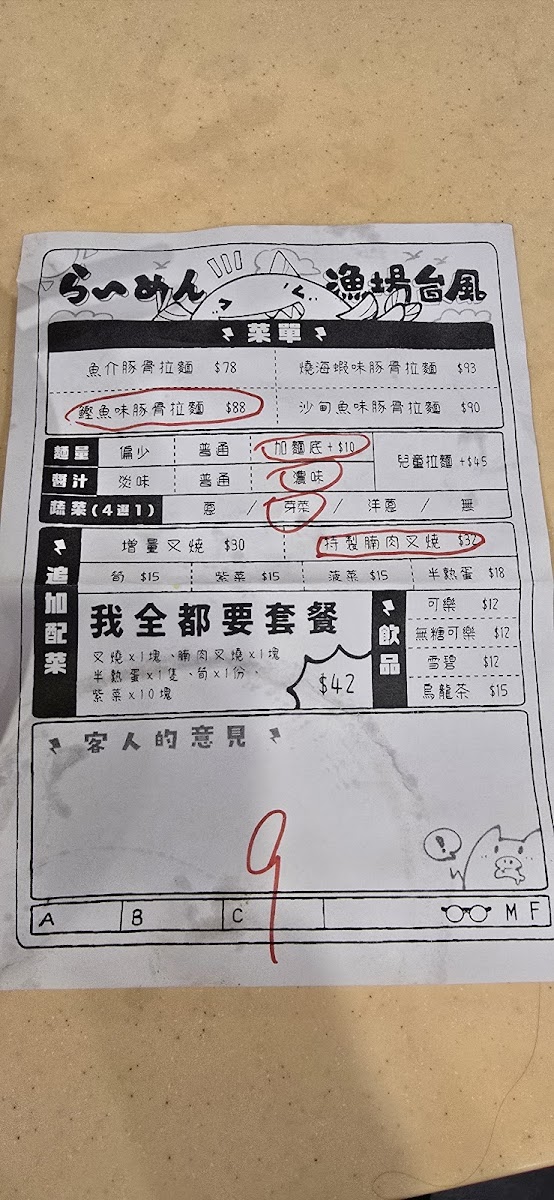 らーめん 漁場台風
菜單
魚介豚骨拉麵 $78 燒海蝦味豚骨拉麵 $93
鰹魚味豚骨拉麵 $88 沙甸魚味豚骨拉麵 $90
麵量 偏少 普通 加麵底+$10 兒童拉麵+$45
醬汁 淡味 普通 濃味
蔬菜(4選1) 蔥 / 芽菜 / 洋蔥 / 無
追加配菜
增量叉燒 $30 特製腩肉叉燒 $32
筍 $15 紫菜 $15 菠菜 $15 半熟蛋 $18
我全都要套餐
叉燒x1塊、腩肉叉燒x1塊
半熟蛋x1隻、筍x1份、
紫菜x10塊
$42
飲品
可樂 $12
無糖可樂 $12
雪碧 $12
烏龍茶 $15
客人的意見
9
!
A B C M F